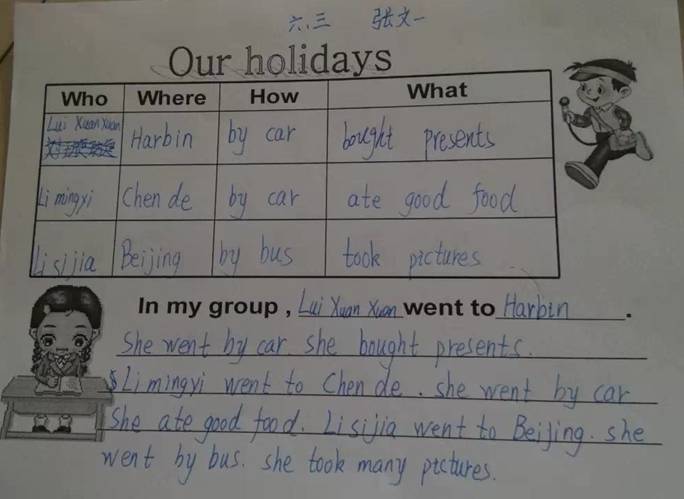 六.三 张文一
Our holidays
Who Where How What
Lui Xuan Xuan Harbin by car bought presents
Li mingyi Chen de by car ate good food
Li sijia Beijing by bus took pictures
In my group , Lui Xuan Xuan went to Harbin .
She went by car. she bought presents.
Li mingyi went to Chen de . she went by car
She ate good food. Li sijia went to Beijing. she
went by bus. she took many pictures.